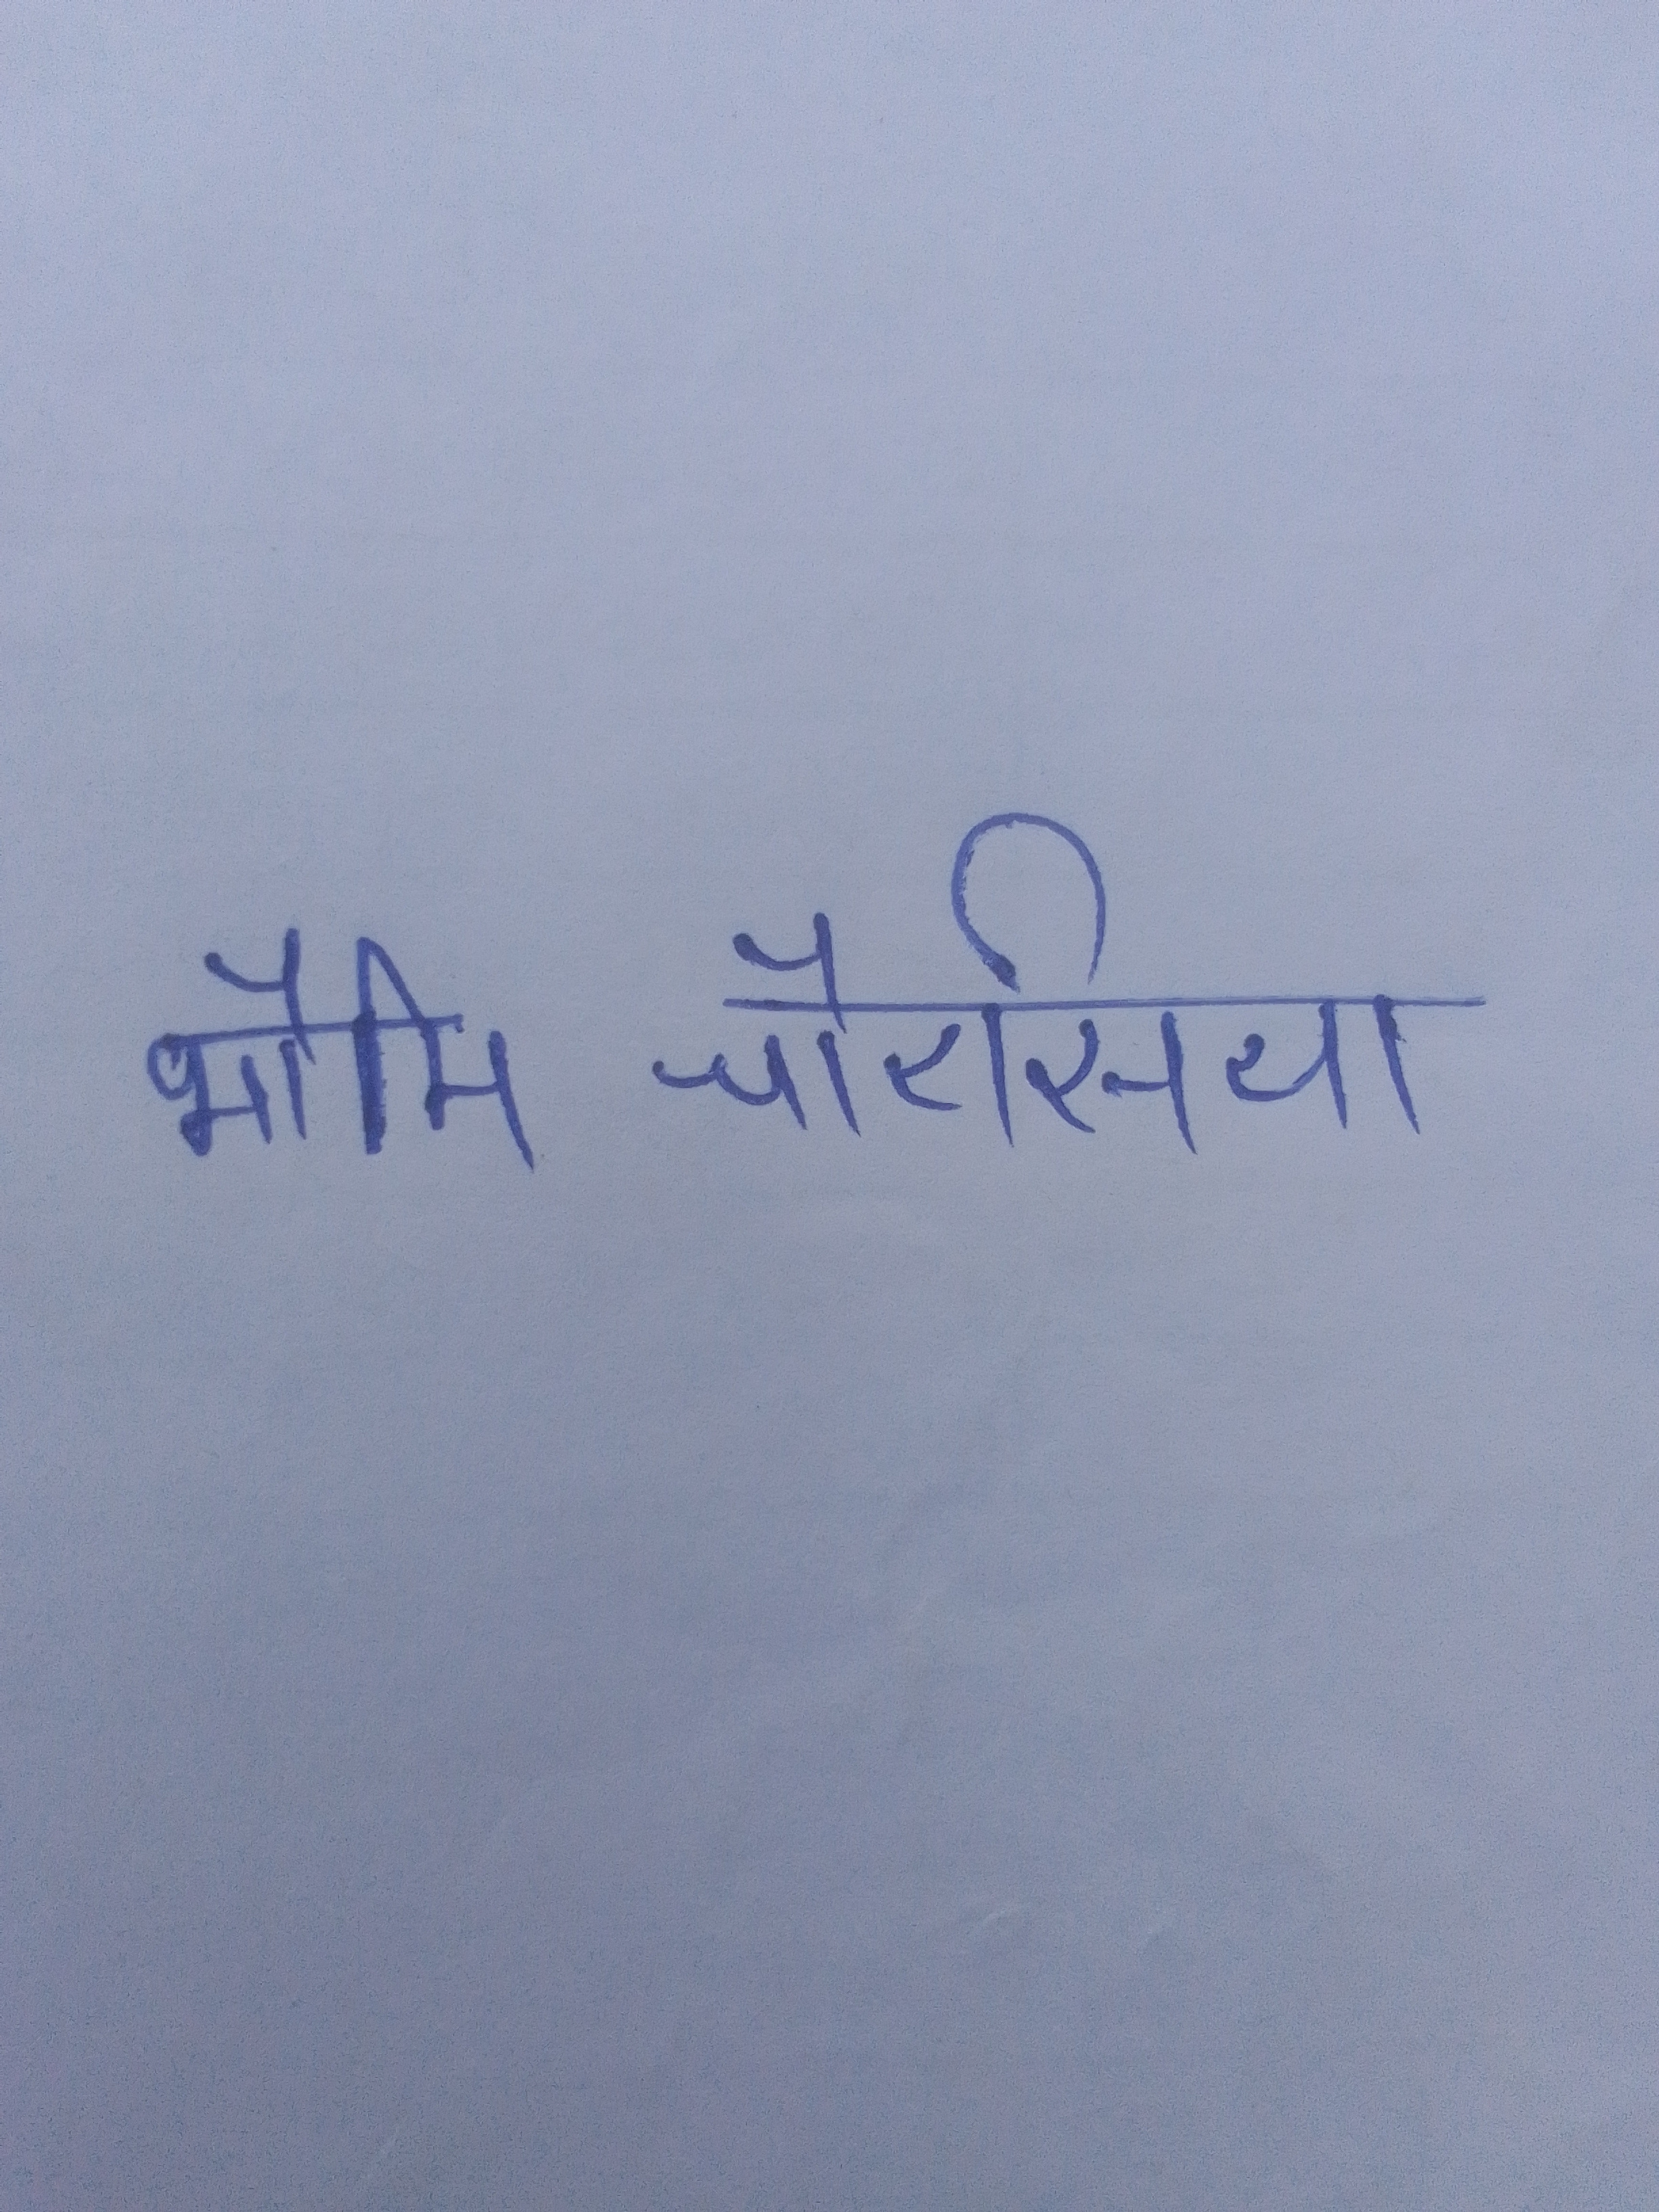 भौमि चौरसिया